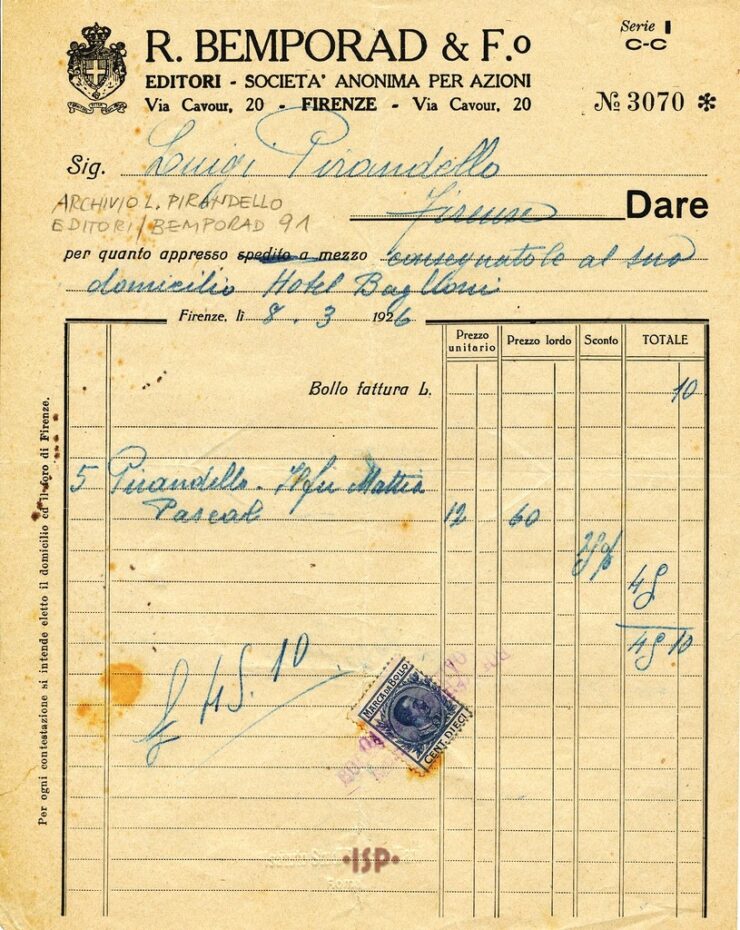 R. BEMPORAD & F.º
EDITORI - SOCIETA' ANONIMA PER AZIONI
Via Cavour, 20 - FIRENZE - Via Cavour, 20
Serie I
C-C
№ 3070 *
Sig. Luigi Pirandello
ARCHIVIO L. PIRANDELLO
EDITORI/BEMPORAD 91
Firenze Dare
per quanto appresso spedito a mezzo consegnatole al suo
domicilio Hotel Baglioni
Firenze, lì 8.3 1926
Prezzo unitario Prezzo lordo Sconto TOTALE
Bollo fattura L. 10
5 Pirandello - Il fu Mattia
Pascal 12 60
25%
45
45 10
£ 45.10
MARCA DA BOLLO
CENT. DIECI
·ISP·
Per ogni contestazione si intende eletto il domicilio ed il foro di Firenze.